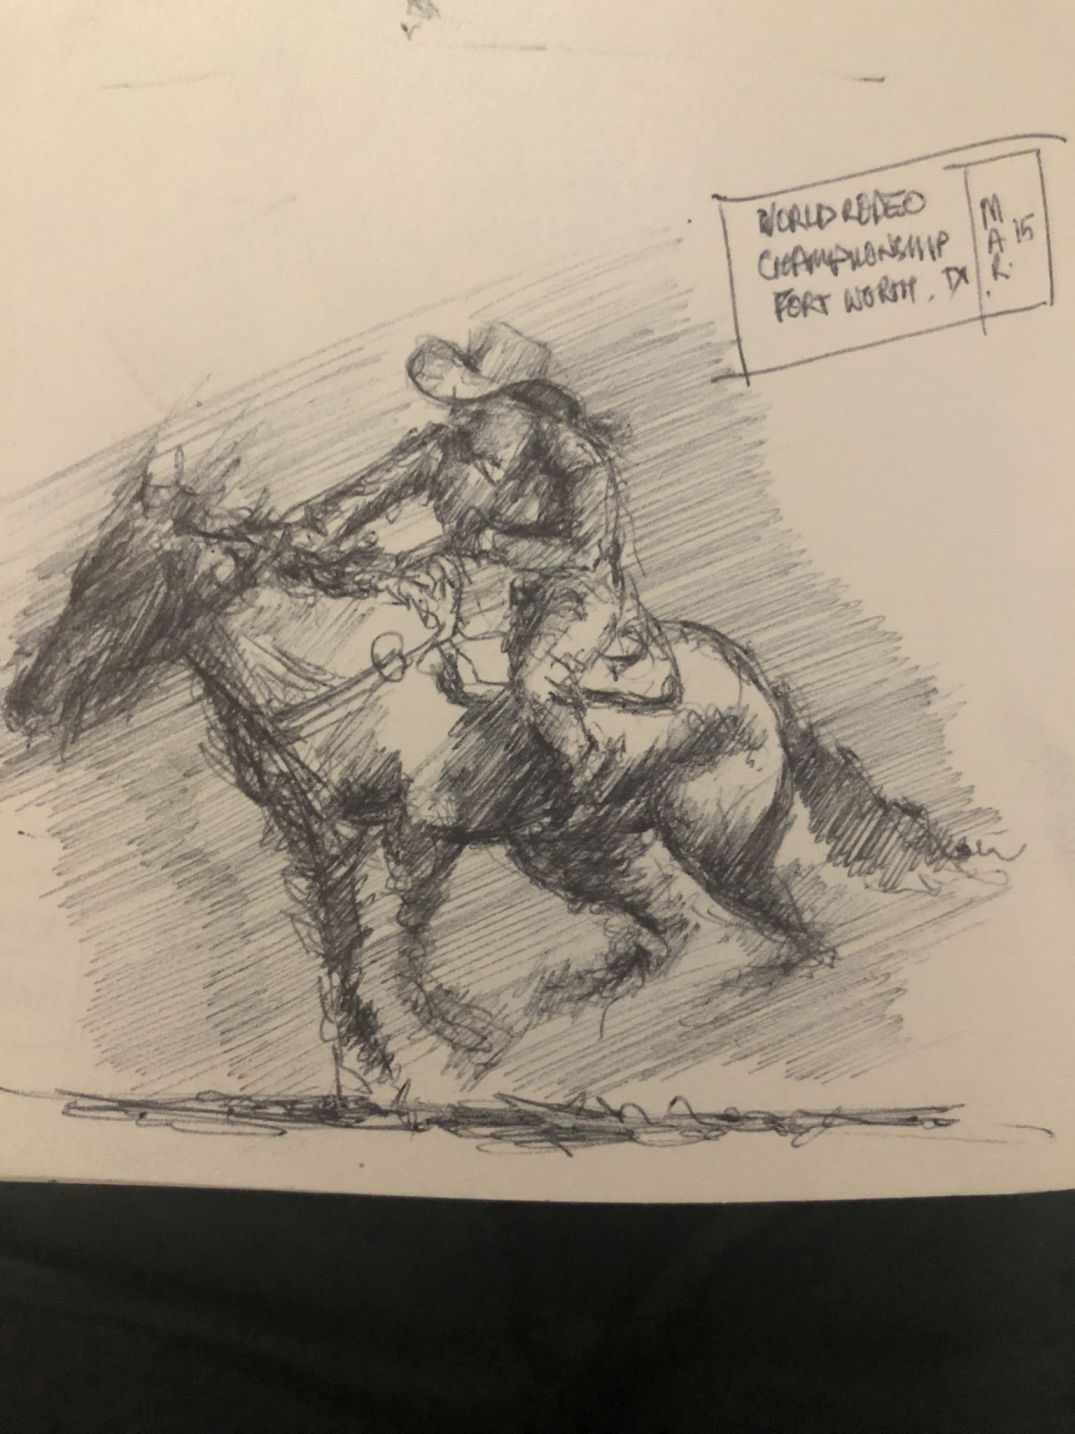 WORLD RODEO
CHAMPIONSHIP
FORT WORTH, TX
MAR. 15